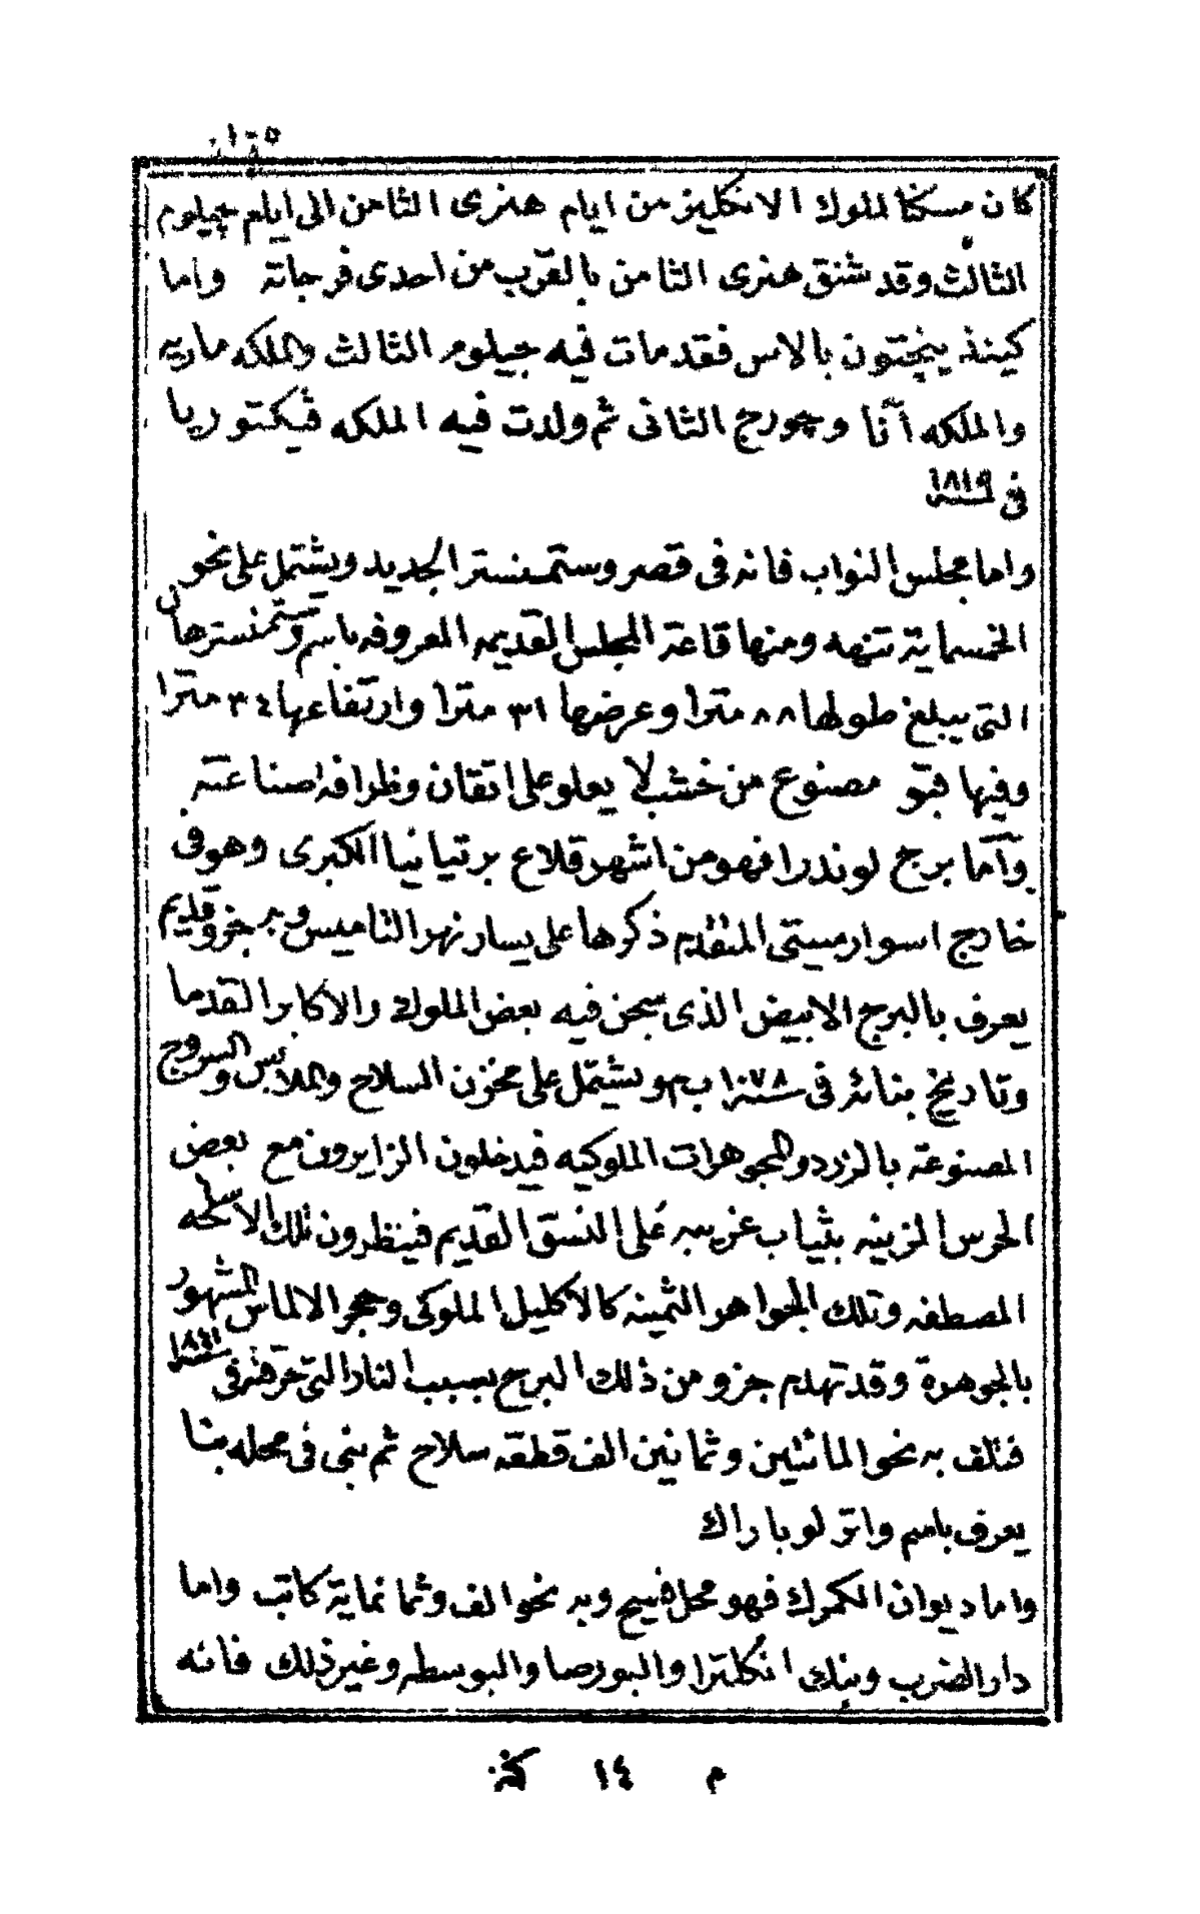 ١٠٥
كان مسكنا لملوك الانكليز من ايام هنرى الثامن الى ايام چيليوم
الثالث وقد شنق هنرى الثامن بالقرب من احدى فرجاته واما
كينذينجتون بالاس فقد مات فيه جيليوم الثالث والملكه ماريه
والملكه آنّا وچورج الثانى ثم ولدت فيه الملكه ڤيكتوريا
فى سنة ١٨١٩
واما مجلس النواب فانه فى قصر وستمنستر الجديد ويشتمل على نحو
الخمسماية تنهه ومنها قاعة المجلس القديمه المعروفه باسم وستمنسترهال
التى يبلغ طولها ٨٨ مترا وعرضها ٣١ مترا وارتفاعها ٣٤ مترا
وفيها قبو مصنوع من خشب لا يعلو على اتقان وظرافة صناعته
وآمّا برج لوندرا فهو من اشهر قلاع برتيانيا الكبرى وهو فى
خارج اسوار سيتى المتقدم ذكرها على يسار نهر التاميس وبه جزو قديم
يعرف بالبرج الابيض الذى سجن فيه بعض الملوك والاكابر القدما
وتاريخ بنائه فى سنة ١٠٧٨ ب م ويشتمل على مخزن السلاح والملابس والسروج
المصنوعة بالزرد والمجوهرات الملوكيه فيدخلون الزايرون مع بعض
الحرس المزينيه بثياب غريبه على النسق القديم فينظرون تلك الاسلحه
المصطفه وتلك الجواهر الثمينه كالاكليل الملوكى وحجر الالماس المشهور
بالجوهرة وقد تهدم جزو من ذلك البرج بسبب النار التى حرقته فى سنة ١٨٤١
فتلف به نحو المائتين وثمانين الف قطعه سلاح ثم بنى فى محله بنا
يعرف باسم واتر لو باراك
واما ديوان الكمرك فهو محل فسيح وبه نحو الف وثمانماية كاتب واما
دار الضرب وبنك انكلترا والبورصا والبوسطه وغير ذلك فانه
م ١٤